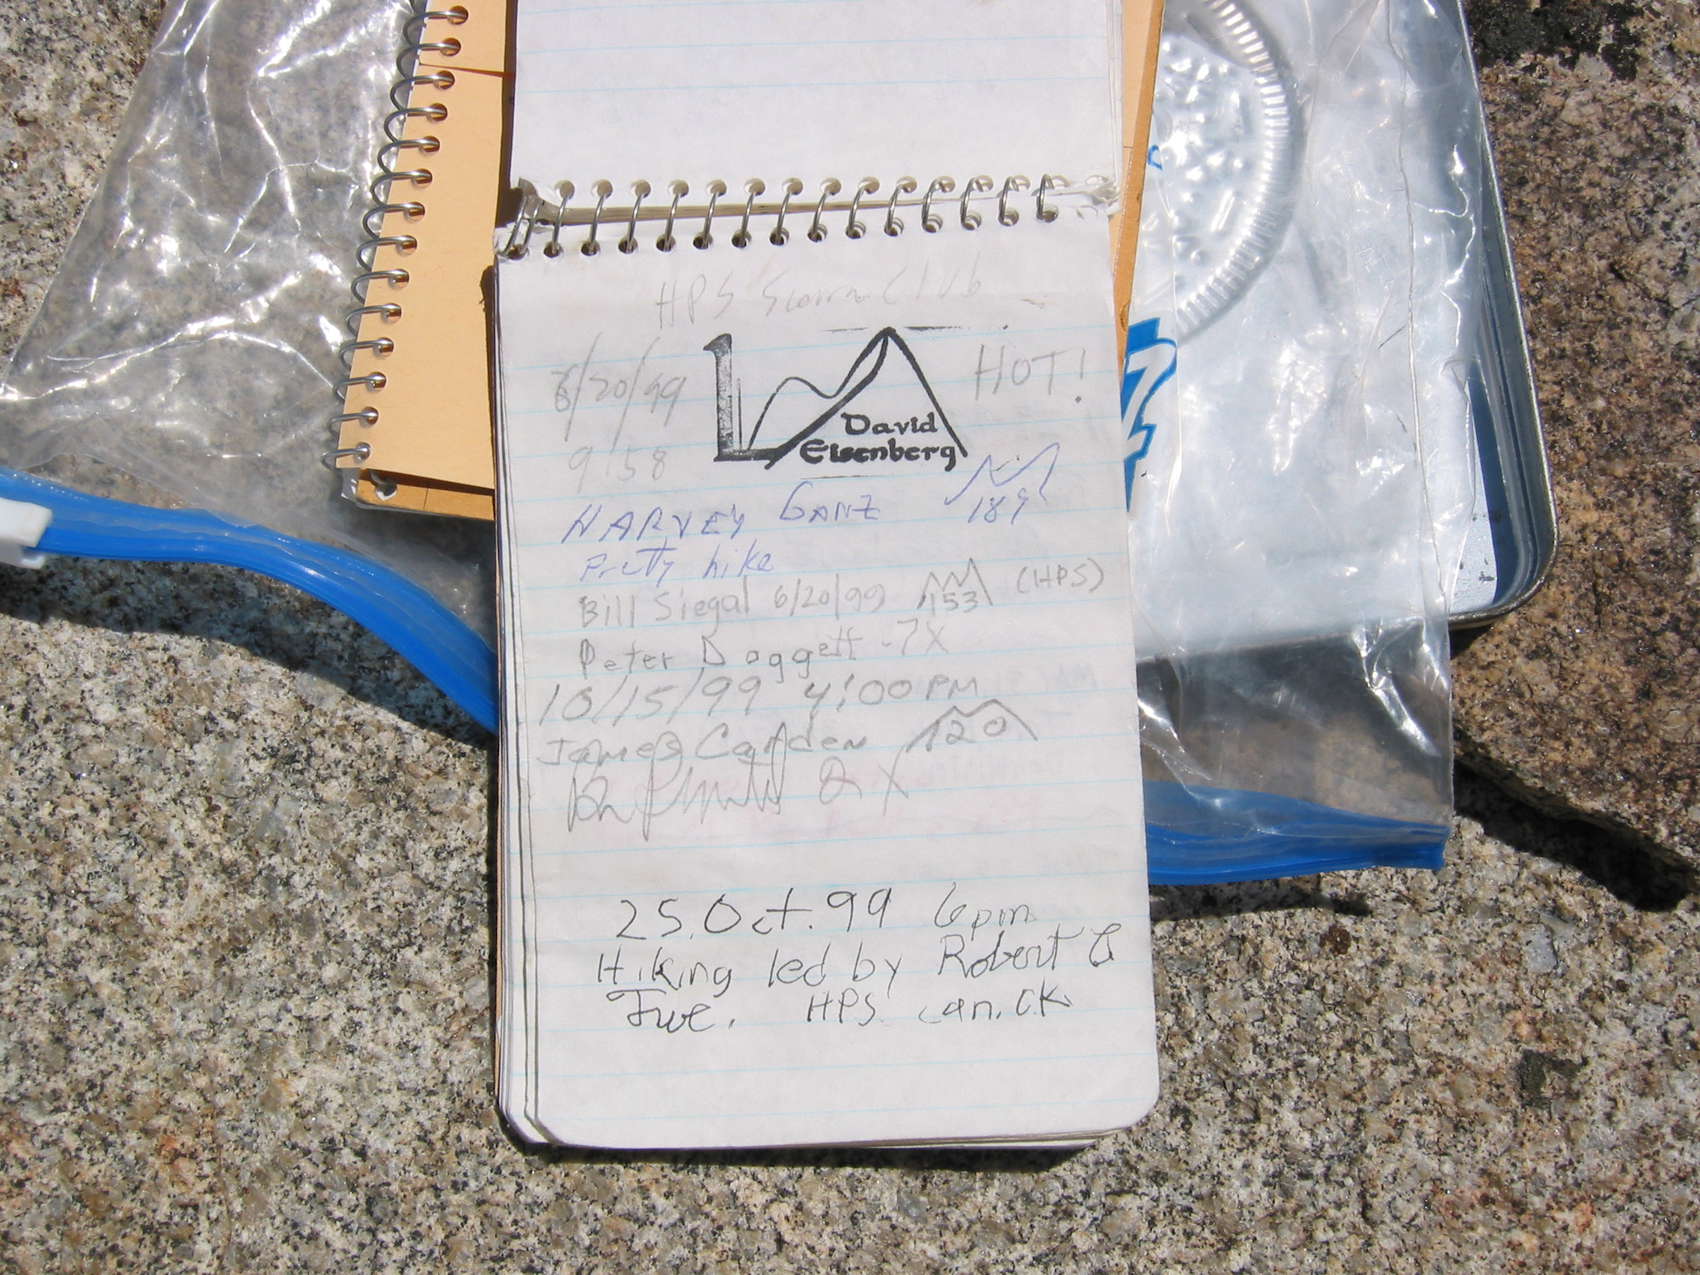 HPS Club
6/20/99 HOT!
9:58 David
Eisenberg
HARVEY GANZ 189
Pretty hike
Bill Siegal 6/20/99 153 (HPS)
Peter Doggett - 7X
10/15/99 4:00 PM
James Carden 120
2X
25. Oct. 99 6pm
Hiking led by Robert
HPS